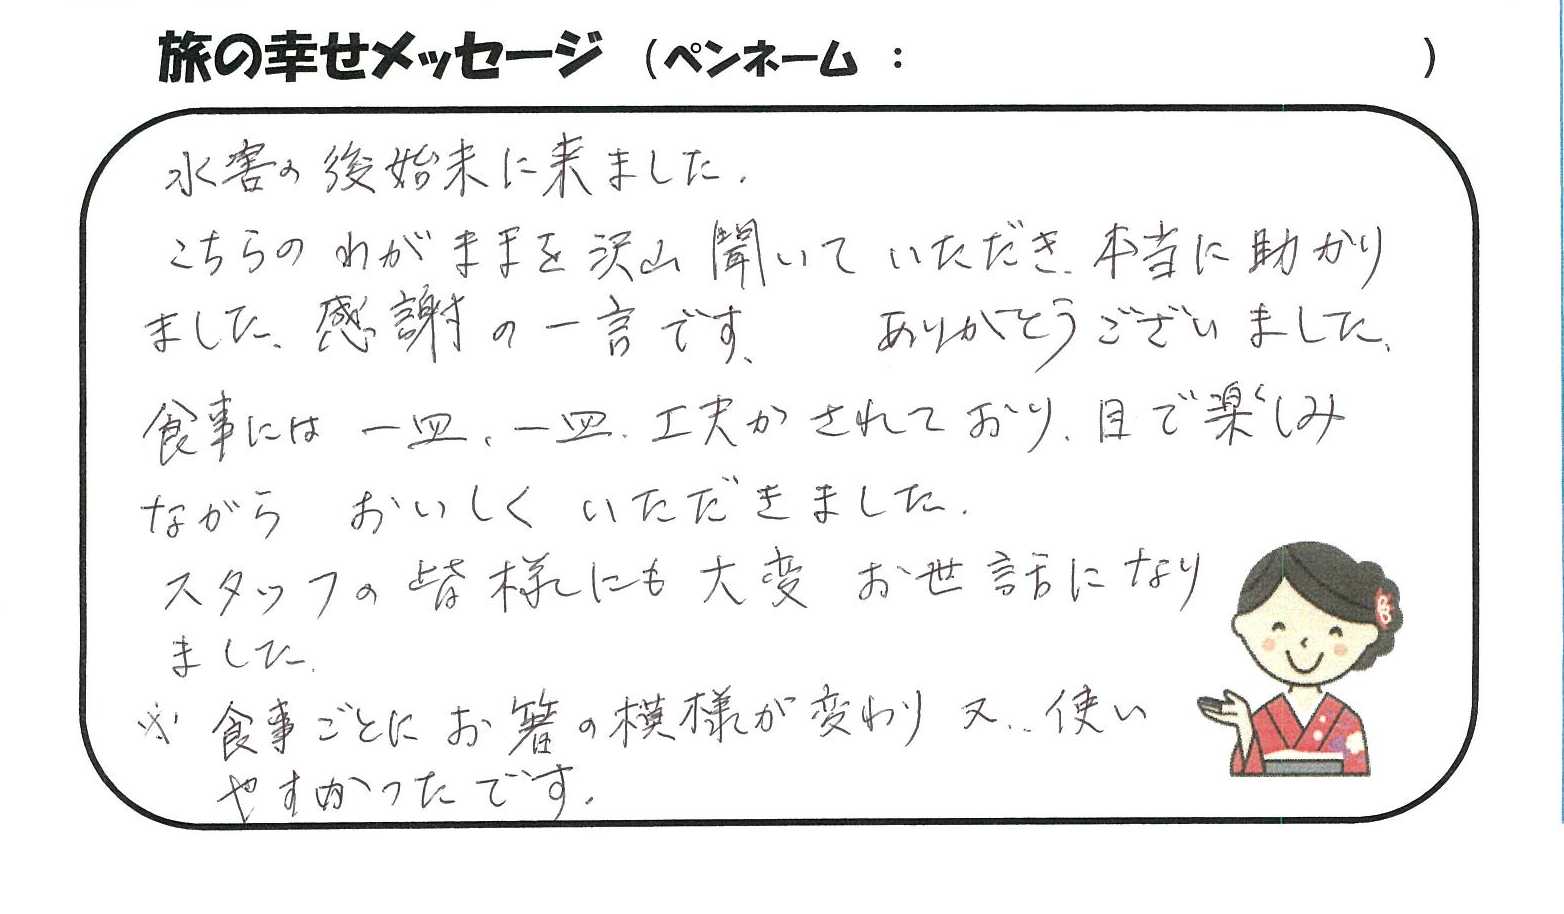 旅の幸せメッセージ (ペンネーム : )
水害の後始末に来ました.
こちらのわがままを沢山聞いていただき、本当に助かり
ました、感謝の一言です、 ありがとうございました、
食事には一皿、一皿、工夫がされており、目で楽しみ
ながら おいしく いただきました.
スタッフの皆様にも大変 お世話になり
ました.
※ 食事ごとにお箸の模様が変わり又、使い
やすかったです.